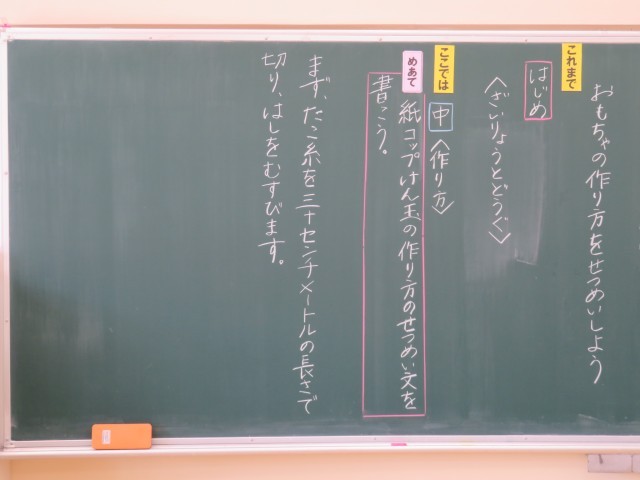 おもちゃの作り方をせつめいしよう
これまで
はじめ
〈ざいりょうとどうぐ〉
ここでは
中 〈作り方〉
めあて
紙コップけん玉の作り方のせつめい文を
書こう。
まず、たこ糸を三十センチメートルの長さで
切り、はしをむすびます。